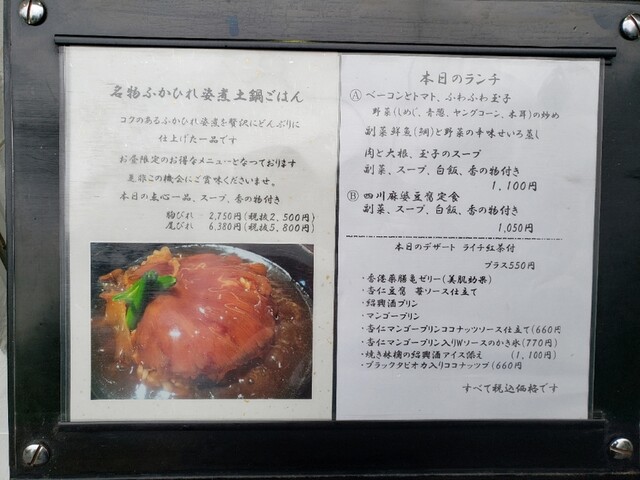 名物ふかひれ姿煮土鍋ごはん
コクのあるふかひれ姿煮を贅沢にどんぶりに
仕上げた一品です
お昼限定のお得なメニューとなっております
是非この機会にご賞味くださいませ。
本日の点心一品、スープ、香の物付き
胸びれ 2,750円(税抜2,500円)
尾びれ 6,380円(税抜5,800円)
本日のランチ
Ⓐ ベーコンとトマト、ふわふわ玉子
野菜(しめじ、青葱、ヤングコーン、木耳)の炒め
副菜鮮魚(鯛)と野菜の辛味せいろ蒸し
肉と大根、玉子のスープ
副菜、スープ、白飯、香の物付き
1,100円
Ⓑ 四川麻婆豆腐定食
副菜、スープ、白飯、香の物付き
1,050円
本日のデザート ライチ紅茶付
プラス550円
・香港薬膳亀ゼリー(美肌効果)
・杏仁豆腐 苺ソース仕立て
・紹興酒プリン
・マンゴープリン
・杏仁マンゴープリンココナッツソース仕立て(660円
・杏仁マンゴープリン入りWソースのかき氷(770円)
・焼き林檎の紹興酒アイス添え (1,100円)
・ブラックタピオカ入りココナッツプ(660円
すべて税込価格です